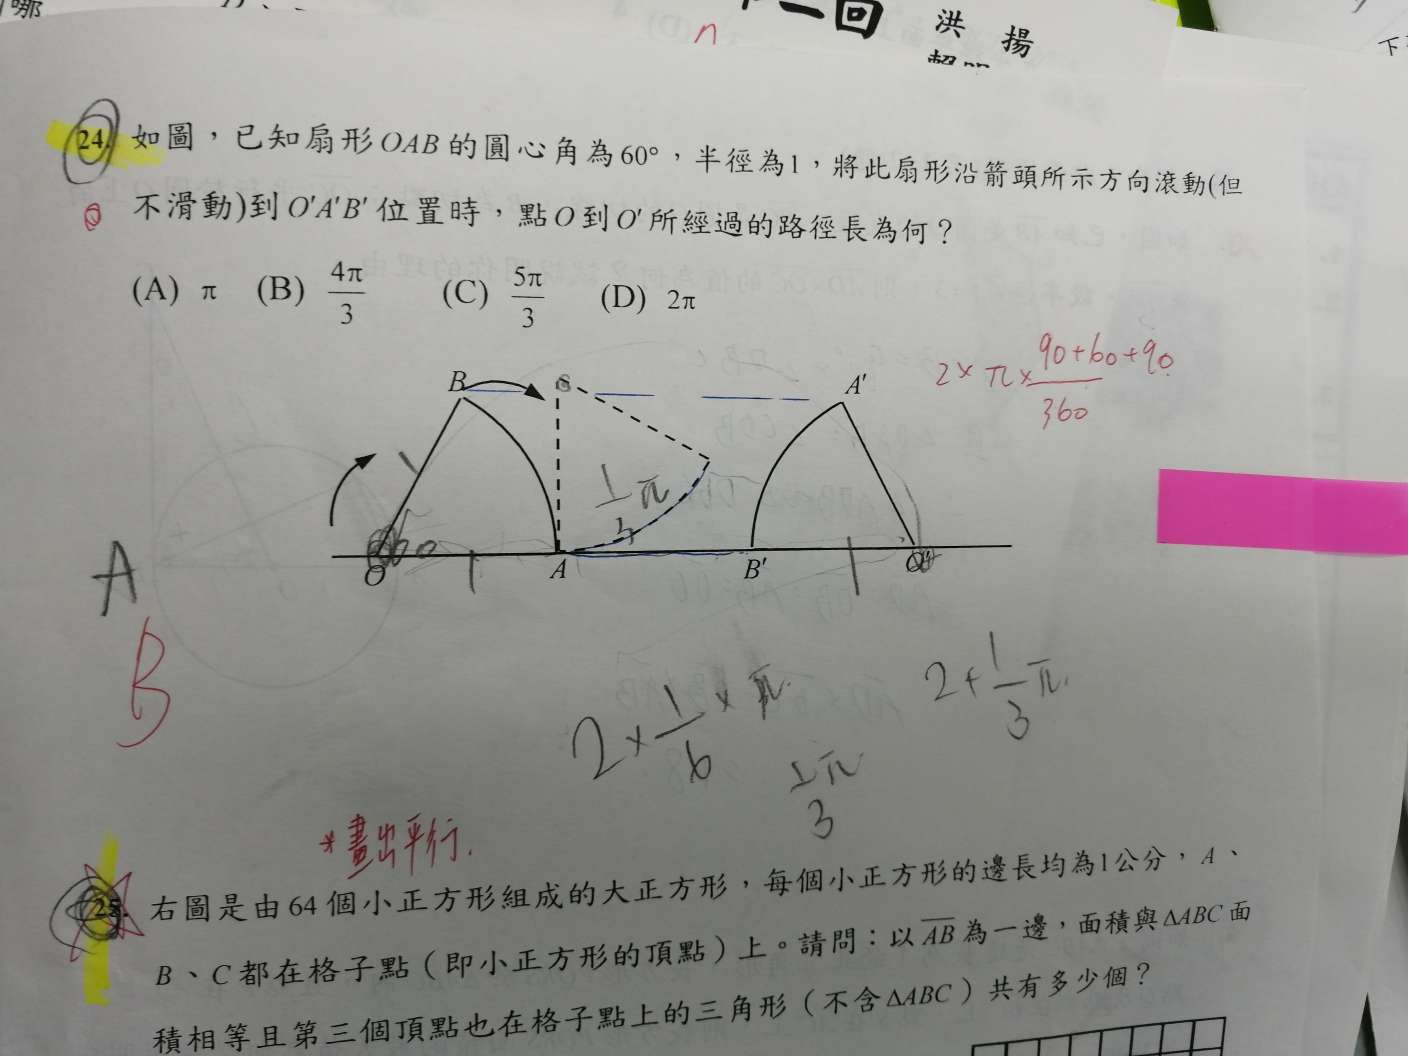 哪
一回
洪 揚
n
24. 如圖，已知扇形OAB的圓心角為60°，半徑為1，將此扇形沿箭頭所示方向滾動(但
不滑動)到O'A'B'位置時，點O到O'所經過的路徑長為何？
(A) π (B) 4π/3 (C) 5π/3 (D) 2π
2×π×(90+60+90)/360
B A'
1 1/3π
60
O 1 A B' 1 O'
A
B
2×1/6×π 2+1/3π
1/3π
*畫出平行.
25. 右圖是由64個小正方形組成的大正方形，每個小正方形的邊長均為1公分，A、
B、C都在格子點（即小正方形的頂點）上。請問：以AB為一邊，面積與ΔABC面
積相等且第三個頂點也在格子點上的三角形（不含ΔABC）共有多少個？